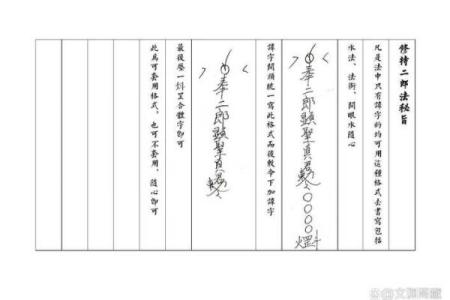 修持二郎法秘旨
凡是法中只有諱字的均可用這種格式去書寫包括
水法、法術、開眼水隨心
奉二郎顯聖真君〇〇〇〇
諱字開頭統一寫此格式而後敕令下加諱字
奉二郎顯聖真君
最後壓一罡合體字即可
此為可套用格式,也可不套用,隨心即可